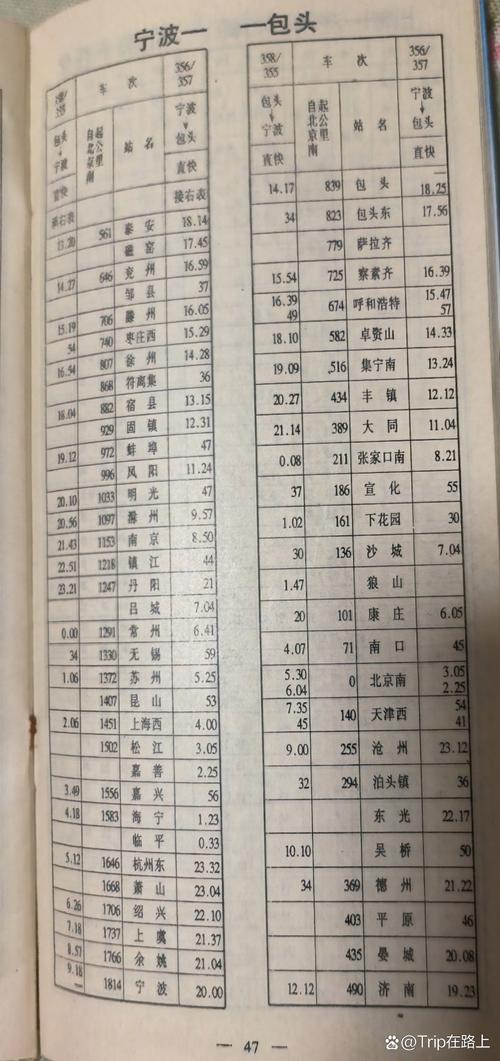 宁波— —包头
358/355 车次 356/357
包头→宁波 自北京南起公里 站名 宁波→包头
直快 直快
承右表 接右表
13.20 561 泰安 18.14
磁窑 17.45
14.27 646 兖州 16.59
邹县 37
15.19 706 滕州 16.05
54 740 枣庄西 15.29
16.54 807 徐州 14.28
868 符离集 36
18.04 882 宿县 13.15
929 固镇 12.31
19.12 972 蚌埠 47
996 凤阳 11.24
20.10 1033 明光 47
20.56 1097 滁州 9.57
21.43 1153 南京 8.50
22.51 1218 镇江 44
23.21 1247 丹阳 21
吕城 7.04
0.00 1291 常州 6.41
34 1330 无锡 59
1.06 1372 苏州 5.25
1407 昆山 53
2.06 1451 上海西 4.00
1502 松江 3.05
嘉善 2.25
3.49 1556 嘉兴 56
4.18 1583 海宁 1.23
临平 0.33
5.12 1646 杭州东 23.32
1668 萧山 23.04
6.26 1706 绍兴 22.10
7.18 1737 上虞 21.37
8.57 1766 余姚 21.04
9.18 1814 宁波 20.00
358/355 车次 356/357
包头→宁波 自北京南起公里 站名 宁波→包头
直快 直快
14.17 839 包头 18.25
34 823 包头东 17.56
779 萨拉齐
15.54 725 察素齐 16.39
16.39 49 674 呼和浩特 15.47 57
18.10 582 卓资山 14.33
19.09 516 集宁南 13.24
20.27 434 丰镇 12.12
21.14 389 大同 11.04
0.08 211 张家口南 8.21
37 186 宣化 55
1.02 161 下花园 30
30 136 沙城 7.04
1.47 狼山
20 101 康庄 6.05
4.07 71 南口 45
5.30 6.04 0 北京南 3.05 2.25
7.35 45 140 天津西 54 41
9.00 255 沧州 23.12
32 294 泊头镇 36
东光 22.17
10.10 吴桥 50
34 369 德州 21.22
403 平原 46
435 晏城 20.08
12.12 490 济南 19.23
— 47 —
@Trip在路上